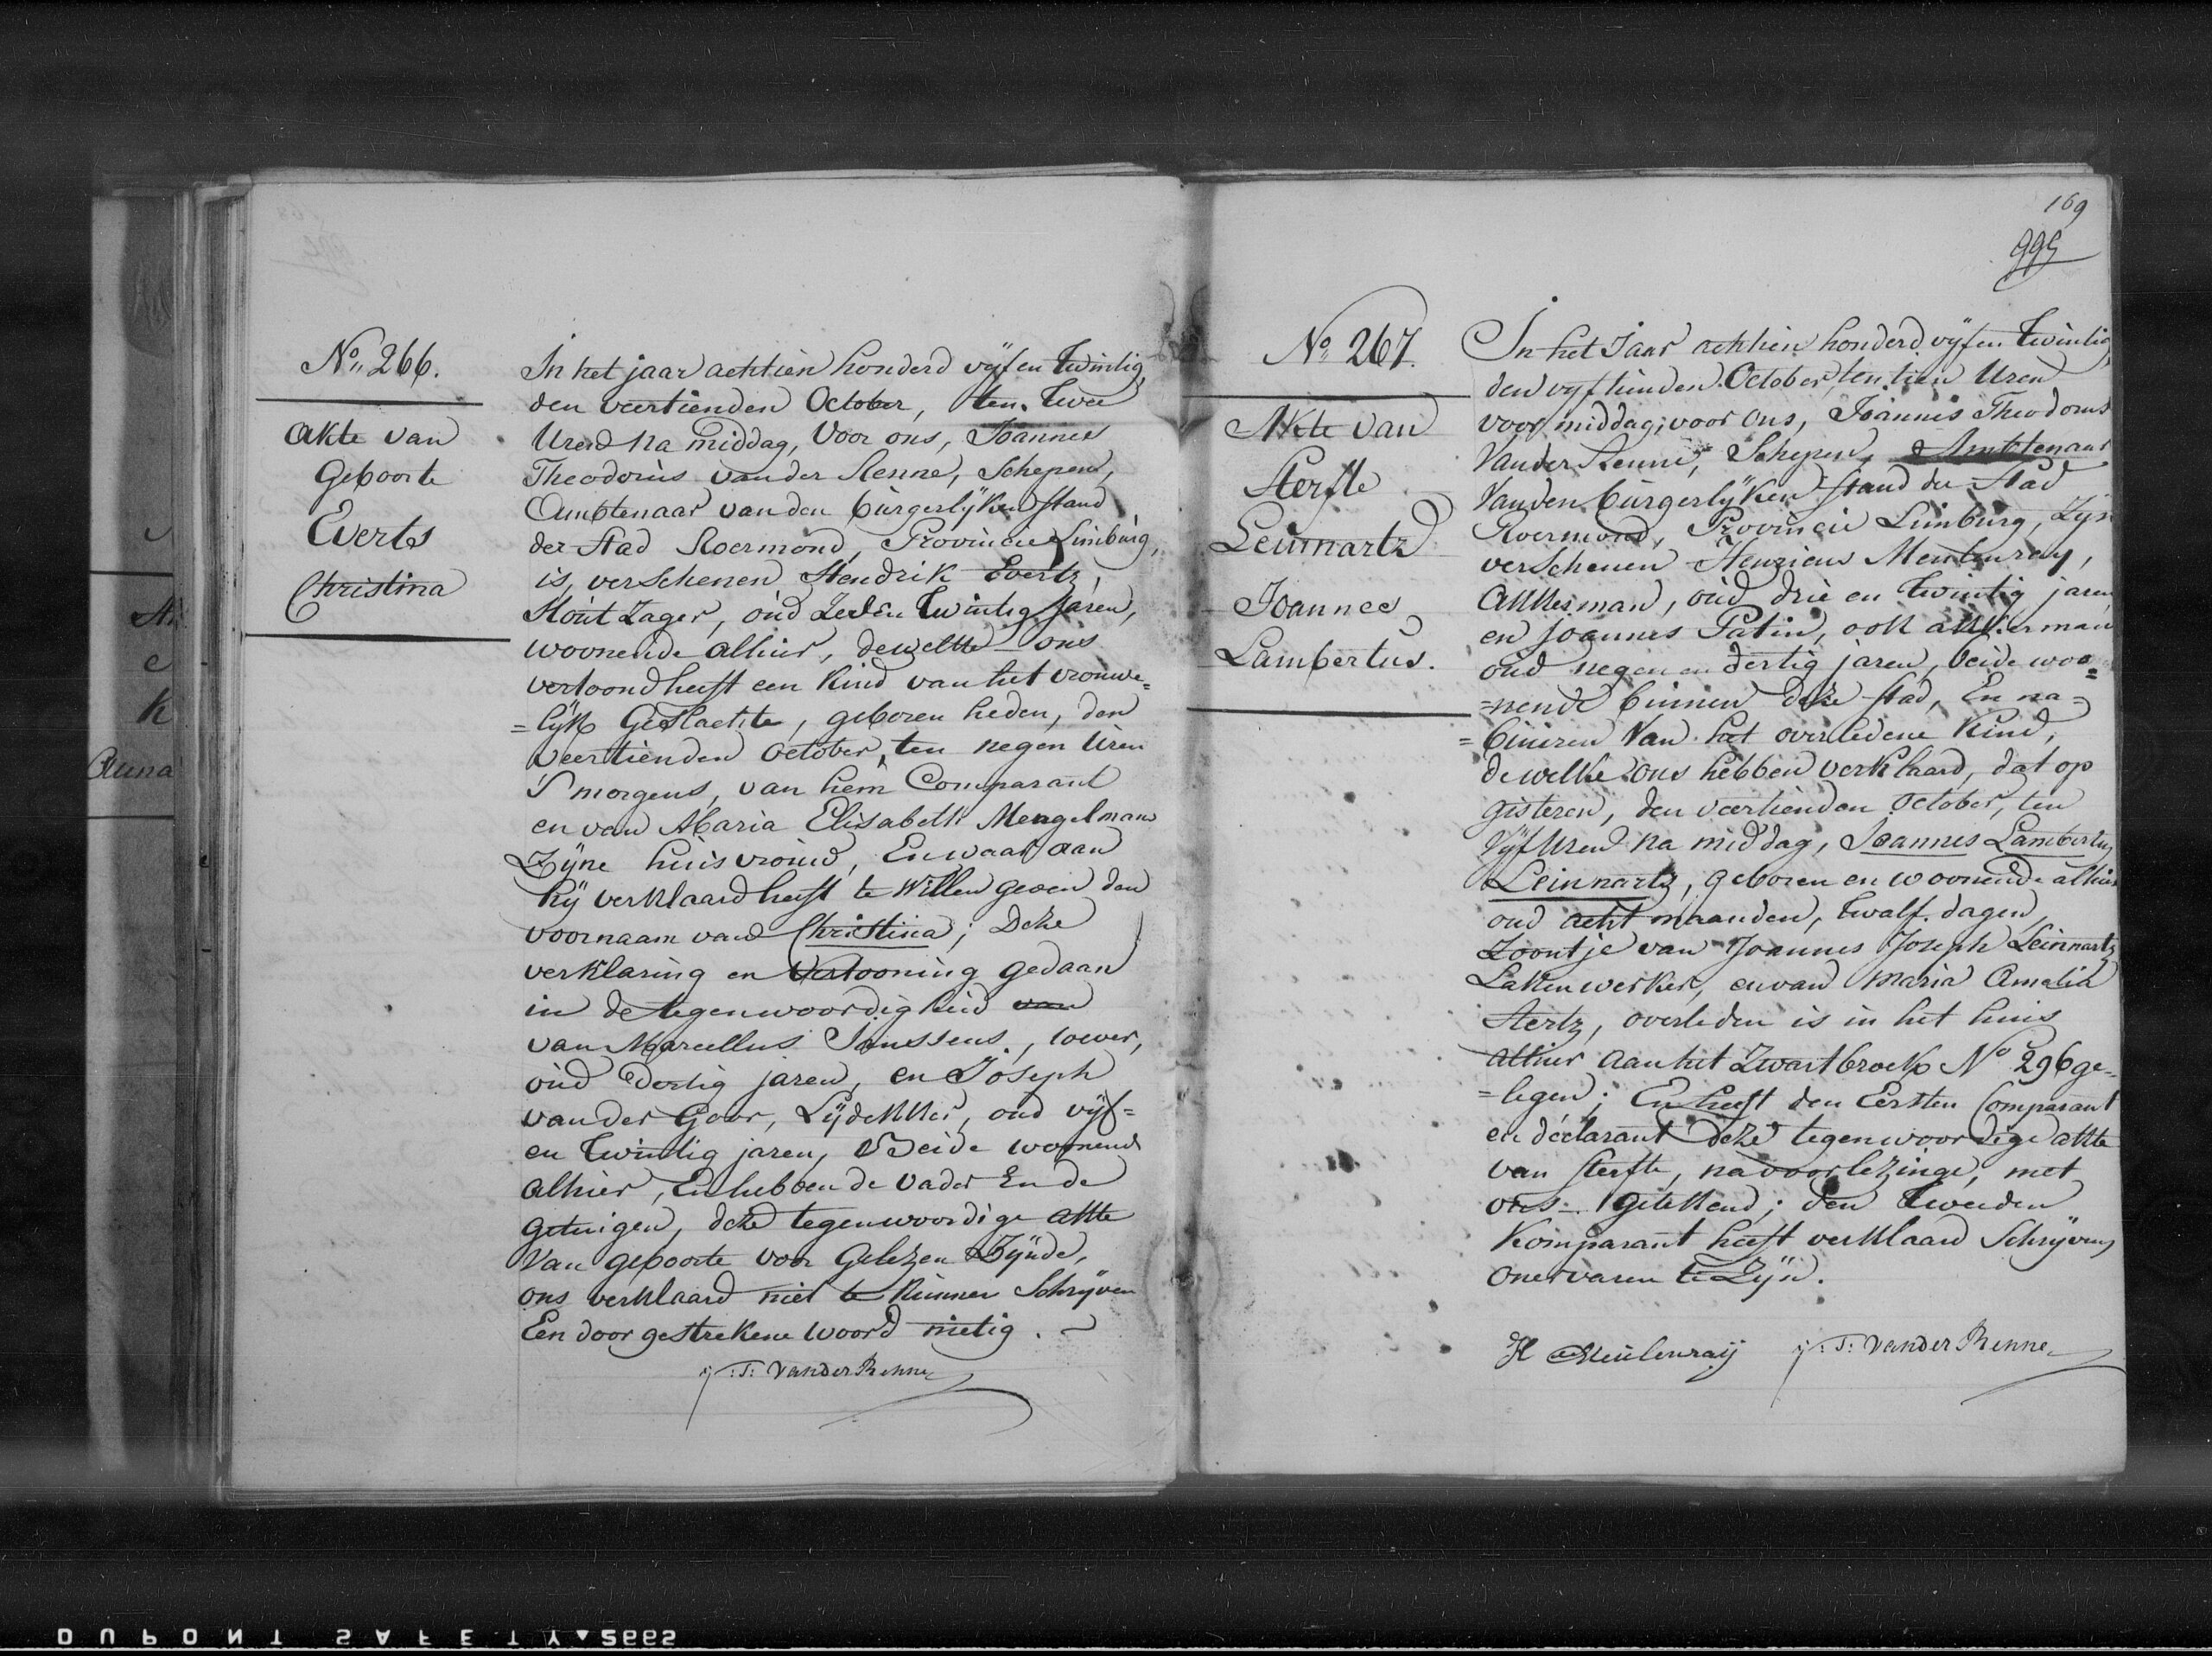 No. 266.
Akte van
Geboorte
Everts
Christina
In het jaar achtien honderd vijf en twintig,
den veertienden October, ten twee
Uren na middag, voor ons, Joannes
Theodorus van der Renne, Schepen,
Ambtenaar van den burgerlijken stand
der stad Roermond, Provincie Limburg,
is, verschenen Hendrik Evertz,
Hout Zager, oud en twintig Jaren,
woonende alhier, dewelke ons
vertoond heeft een kind van het vrouwe=
=lijk Geslachte, geboren heden, den
veertienden october, ten negen Uren
S'morgens, van hem Comparant
en van Maria Elisabeth Mengelmans
Zijne huisvrouw, En waar aan
hij verklaard heeft te willen geven den
voornaam van Christina; Deze
verklaring en Vertooning gedaan
in de tegenwoordigheid van
van Marcellus Janssens, wever,
oud dertig jaren, en Joseph
van der Goor, Lijdekker, oud vijf=
en twintig jaren, Beide wonend
alhier, En hebben de vader En de
getuigen, deze tegenwoordige akte
van geboorte voor gelezen Zijnde,
ons verklaard niet te kunnen Schrijven
Een door gestrekene woord nietig.
j: T: VanderRenne
169
995
No. 267.
Akte van
Sterfte
Leinnartz
Joannes
Lambertus.
In het Jaar achtien honderd vijf en twintig,
den vyftienden October, ten tien Uren
voor middag, voor ons, Joannes Theodorus
Vander Renne, Schepen, Ambtenaar
Van den burgerlijken stand der Stad
Roermond, Provincie Limburg, Zijn
verschenen Henricus Meulenray,
Akkerman, oud drie en twintig jaren,
en Joannes Patin, ook akkerman
oud negen en dertig jaren, beide woo=
=nende binnen deze stad, En na=
=buuren Van het overledene Kind,
dewelke ons hebben verklaard, dat op
gisteren, den veertienden October, ten
Vijf Uren na middag, Joannes Lambertus
Leinnartz, geboren en woonende alhier
oud acht maanden, twalf dagen,
zoontje van Joannes Joseph Leinnartz
Lakenwerker, en van Maria Amalia
Stertz, overleden is in het huis
alhier aan het Zwartbroek No 296 ge=
=legen; En heeft den Eersten Comparant
en declarant deze tegenwoordige akte
van sterfte, na voorlezinge, met
ons getekend; den tweeden
Komparant heeft verklaard Schrijvens
onervaren te Zijn.
H Meulenraij j: T: VanderRenne
Anna
DUPONT SAFETY